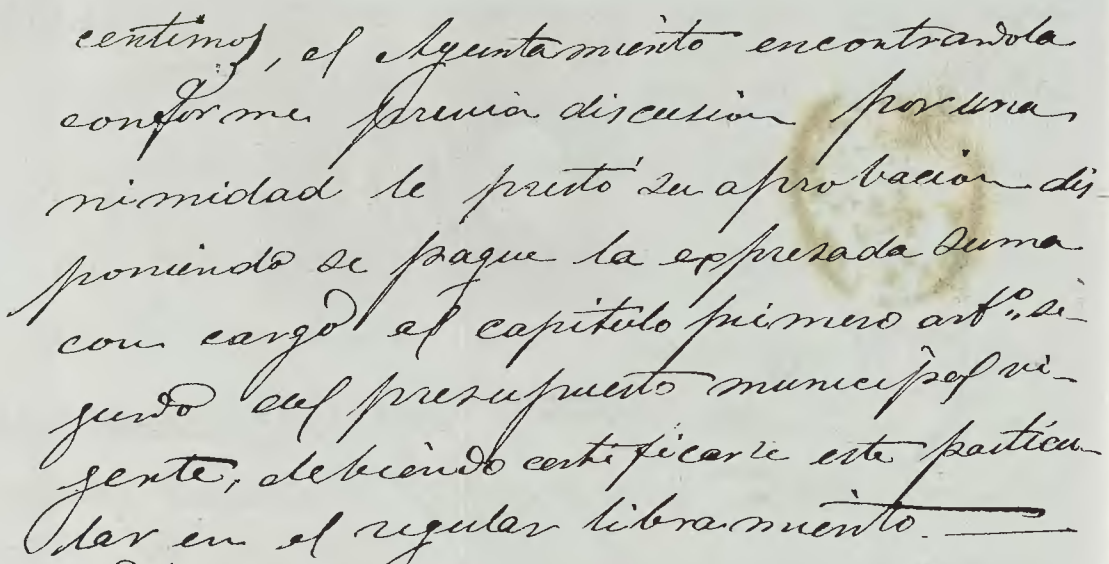 centimos, el Ayuntamiento encontrandola
conforme previa discusion por una
nimidad le prestó su aprobacion dis
poniendo se pague la expresada suma
con cargo al capitulo primero artº. se-
gundo del presupuesto municipal vi-
gente, debiendo certificarse este particu-
lar en el regular libramiento.